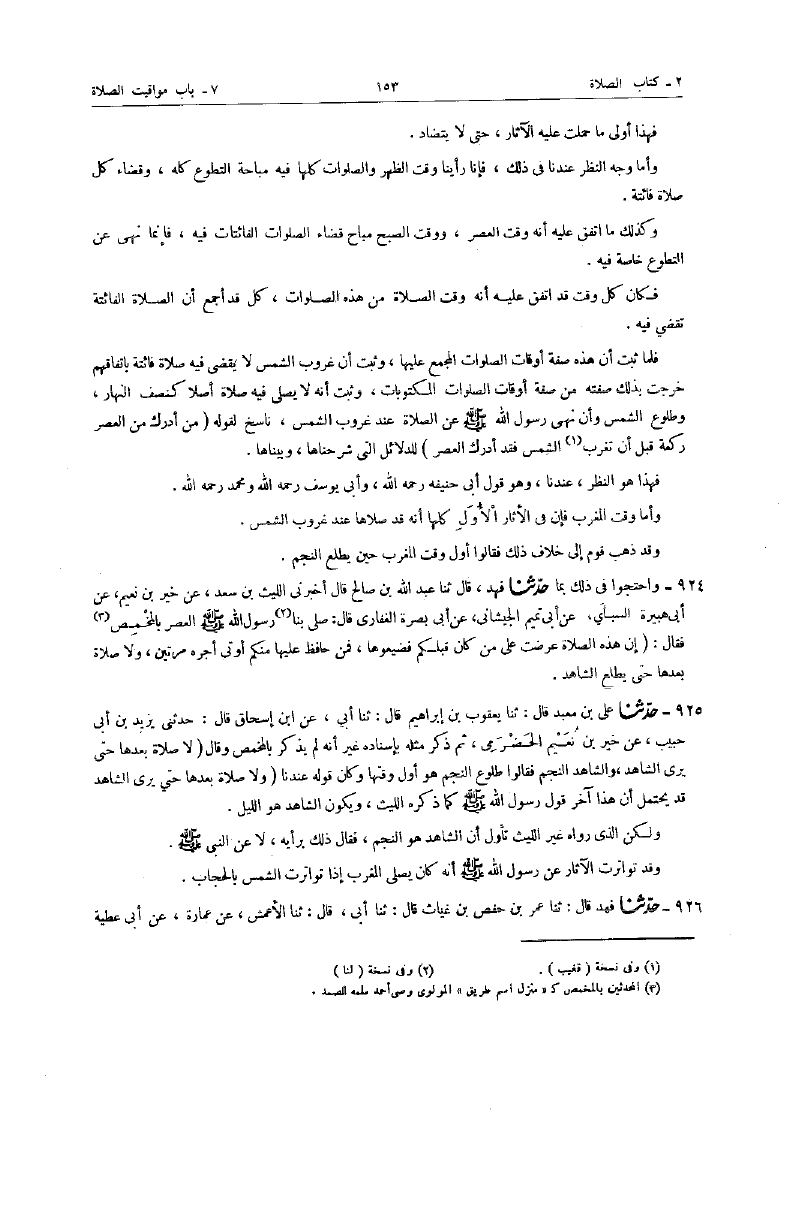 ٢ - كتاب الصلاة ١٥٣ ٧ - باب مواقيت الصلاة
فهذا أولى ما حملت عليه الآثار ، حتى لا يتضاد .
وأما وجه النظر عندنا فى ذلك ، فإنا رأينا وقت الظهر والصلوات كلها فيه مباحة التطوع كله ، وقضاء كل
صلاة فائتة .
وكذلك ما اتفق عليه أنه وقت العصر ، ووقت الصبح مباح قضاء الصلوات الفائتات فيه ، فإنما نهى عن
التطوع خاصة فيه .
فكان كل وقت قد اتفق عليه أنه وقت الصلاة من هذه الصلوات ، كل قد أجمع أن الصلاة الفائتة
تقضي فيه .
فلما ثبت أن هذه صفة أوقات الصلوات المجمع عليها ، وثبت أن غروب الشمس لا يقضى فيه صلاة فائتة باتفاقهم
خرجت بذلك صفته من صفة أوقات الصلوات المكتوبات ، وثبت أنه لا يصلى فيه صلاة أصلا كنصف النهار ،
وطلوع الشمس وأن نهى رسول الله ﷺ عن الصلاة عند غروب الشمس ، ناسخ لقوله ( من أدرك من العصر
ركعة قبل أن تغرب(١) الشمس فقد أدرك العصر ) للدلائل التى شرحناها ، وبيناها .
فهذا هو النظر ، عندنا ، وهو قول أبى حنيفه رحمه الله ، وأبى يوسف رحمه الله ومحمد رحمه الله .
وأما وقت المغرب فإن فى الآثار الأُوَلِ كلها أنه قد صلاها عند غروب الشمس .
وقد ذهب قوم إلى خلاف ذلك فقالوا أول وقت المغرب حين يطلع النجم .
٩٢٤ - واحتجوا فى ذلك بما حدّثنا فهد ، قال ثنا عبد الله بن صالح قال أخبرنى الليث بن سعد ، عن خير بن نعيم، عن
أبى هبيرة السبأي، عن أبى تميم الجيشانى، عن أبى بصرة الغفارى قال: صلى بنا(٢) رسول الله ﷺ العصر بالمُخَمِّص(٣)
فقال : ( إن هذه الصلاة عرضت على من كان قبلكم فضيعوها ، فمن حافظ عليها منكم أوتى أجره مرتين، ولا صلاة
بعدها حتى يطلع الشاهد .
٩٢٥ - حدّثنا على بن معبد قال : ثنا يعقوب بن إبراهيم قال : ثنا أبي ، عن ابن إسحاق قال : حدثنى يزيد بن أبى
حبيب ، عن خير بن نُعَيْم الحَضْرَمِى ، ثم ذكر مثله بإسناده غير أنه لم يذكر بالمخمص وقال ( لا صلاة بعدها حتى
يرى الشاهد ،والشاهد النجم فقالوا طلوع النجم هو أول وقتها وكان قوله عندنا ( ولا صلاة بعدها حتي يرى الشاهد
قد يحتمل أن هذا آخر قول رسول الله ﷺ كما ذكره الليث ، ويكون الشاهد هو الليل .
ولكن الذى رواه غير الليث تأول أن الشاهد هو النجم ، فقال ذلك برأيه ، لا عن النبي ﷺ .
وقد تواترت الآثار عن رسول الله ﷺ أنه كان يصلى المغرب إذا تواترت الشمس بالحجاب .
٩٢٦ - حدّثنا فهد قال : ثنا عمر بن حفص بن غياث قال : ثنا أبى ، قال : ثنا الأعمش ، عن عمارة ، عن أبى عطية
(١) وفى نسخة ( تغيب ) . (٢) وفى نسخة ( لنا )
(٣) المحدثين بالمخمص كـ « منزل اسم طريق » المولوى وصى أحمد سلمه الصمد .